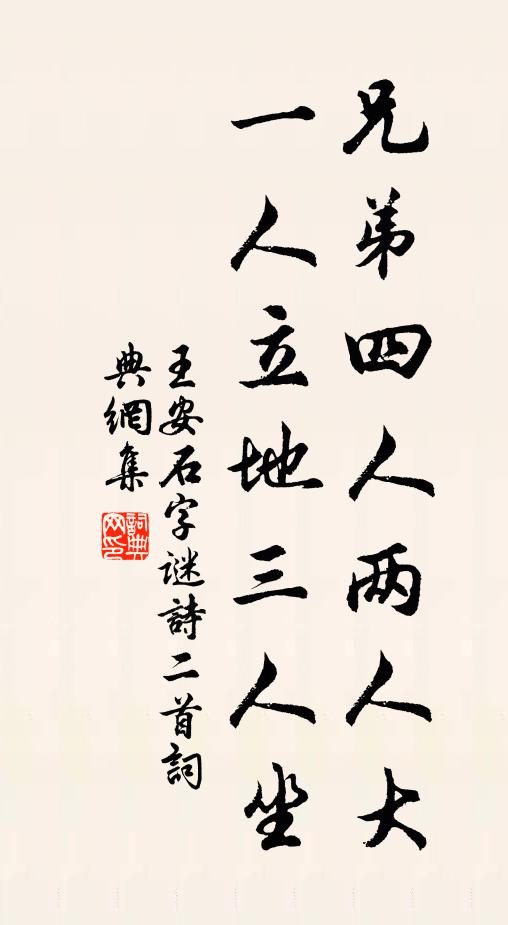 兄弟四人两人大
一人立地三人坐
王安石字谜詩二首詞
典網集
詞典
网印